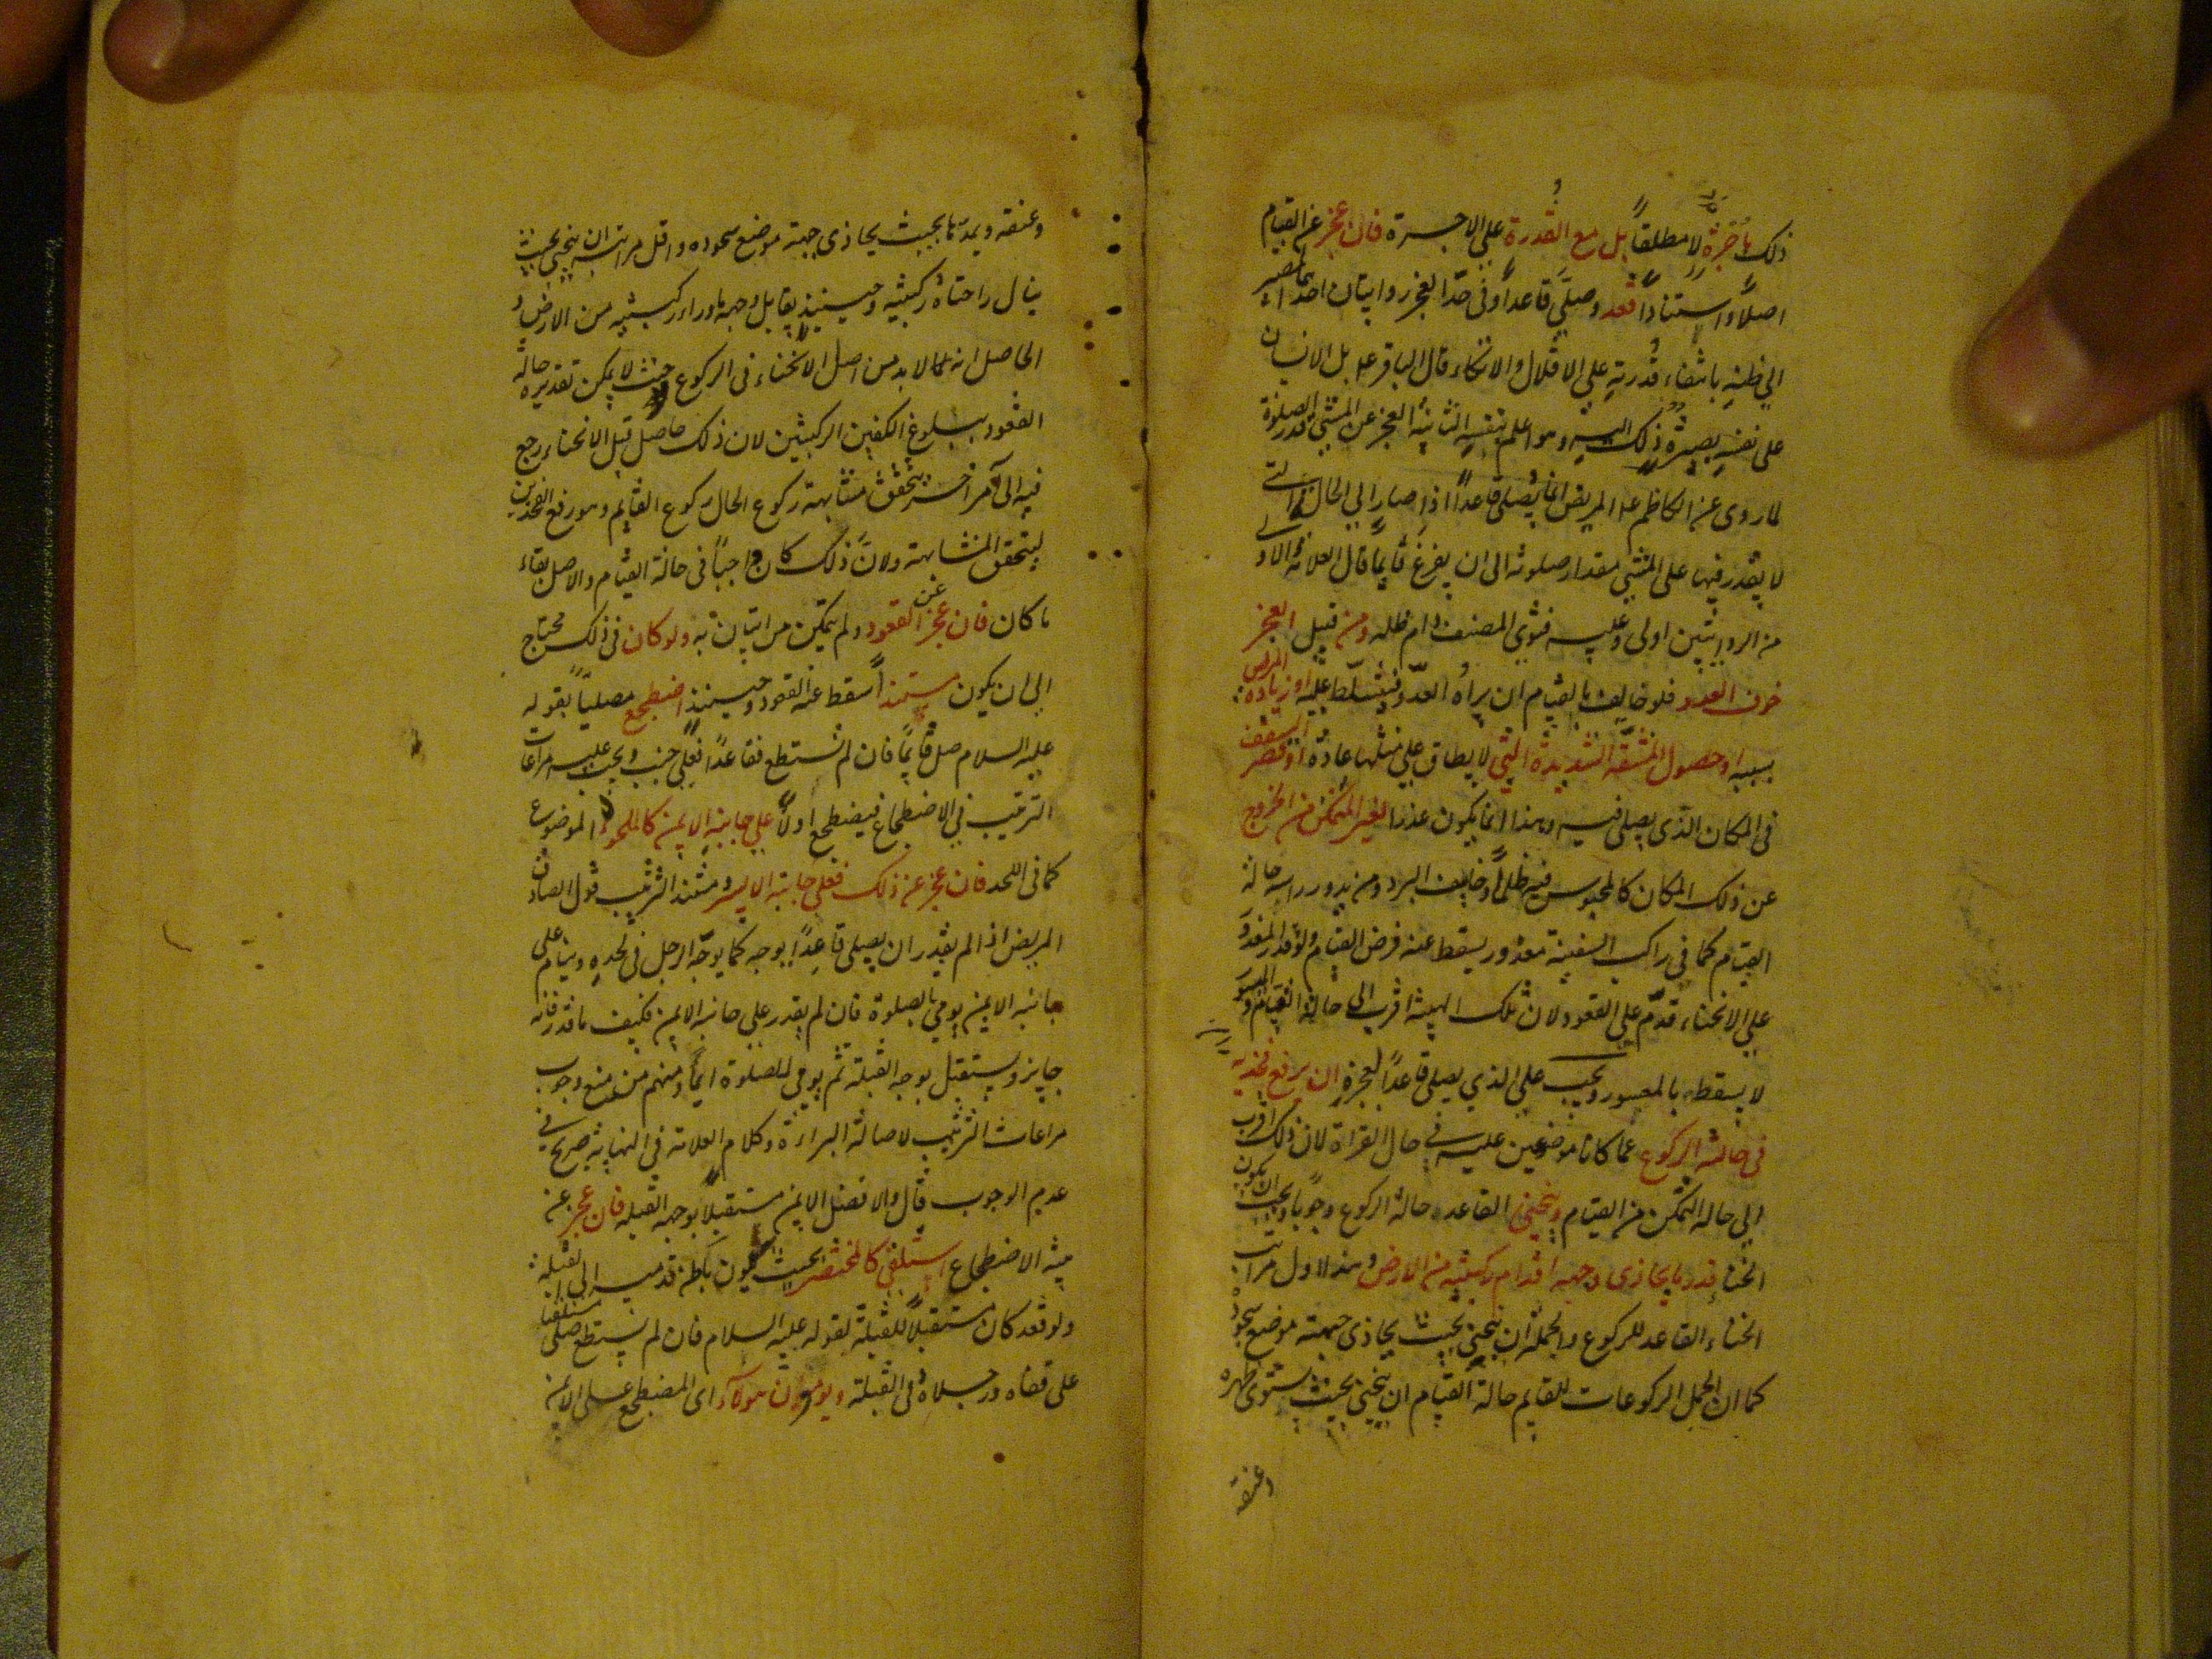 ذلك باجرة لا مطلقاً بل مع القدرة على الاجرة فان عجز عن القيام
اصلاً واستناداً قعد وصلى قاعداً وفى حد العجز روايتان احدهما المصير
الى ظنه بانتفاء قدرته على الاقلال والاتكاء قال الباقر ع بل الانسان
على نفسه بصيرة ذلك اليه وهو اعلم بنفسه الثانية العجز عن المشى قدر الصلوة
لما روى عن الكاظم ع المريض انما يصلى قاعداً اذا صار الى الحال التى
لا يقدر فيها على المشى مقدار صلوته الى ان يفرغ قايماً قال العلامة والاولى
من الروايتين اولى وعليه فتوى المصنف دام ظله ومن قبيل العجز
خوف العدو فلو خالف بالقيام ان يراه العدو فيتسلط عليه او زيادة المرض
بسببه او حصول المشقة الشديدة التى لا يطاق على مثلها عادة او قصر السقف
فى المكان الذى يصلى فيه وهذا انما يكون عذرا لغير المتمكن من الخروج
عن ذلك المكان كالمحبوس فيه ظلماً وخايف البرد ومن يدور راسه حالة
القيام كما فى راكب السفينة معذور يسقط عنه فرض القيام ولو قدر المعذور
على الانحناء قدم على القعود لان تلك الهيئة اقرب الى حالة القيام والميسور
لا يسقط بالمعسور ويجب على الذي يصلى قاعداً لعجزه ان يرفع فخذيه
فى حالة الركوع عما كانا موضوعين عليه فى حال القراة لان ذلك اقرب
الى حالة التمكن من القيام وينحنى القاعد حالة الركوع وجوباً ويجب ان يكون
انحناء قدر ما يحاذى وجهه اقدام ركبتيه من الارض وهذا لاول مراتب
انحناء القاعد للركوع والجملة ان ينحنى بحيث يحاذى جبهته موضع سجوده
كما ان اكمل الركوعات للقايم حالة القيام ان ينحنى بحيث يستوى ظهره
وعنقه
وعنقه ويمدهما بحيث يحاذى جبهته موضع سجوده واقل مراتبه ان ينحنى بحيث
ينال راحتاه ركبتيه وحينئذ يقابل وجهه ماوراء ركبتيه من الارض و
الحاصل انه لما لا بد من اصل الانحناء فى الركوع حيث لا يمكن تقديره حالة
القعود ببلوغ الكفين الركبتين لان ذلك حاصل قبل الانحناء رجع
فيه الى امر اخر يتحقق مشابهة ركوع الحال ركوع القايم وهو رفع الفخذين
ليتحقق المشابهة ولان ذلك كان واجباً فى حالة القيام والاصل بقاء
ما كان فان عجز عن القعود ولم يتمكن من اتيان به ولو كان فى ذلك محتاج
الى ان يكون مستنداً سقط عنه القعود وحينئذ اضطجع مصلياً بقوله
عليه السلام صل قايماً فان لم تستطع فقاعداً فعلى جنب ويجب عليه مراعات
الترتيب فى الاضطجاع فيضطجع اولاً على جانبه الايمن كالملحود الموضوع
كما فى اللحد فان عجز عن ذلك فعلى جانبه الايسر ومستند الترتيب قول الصادق
المريض اذا لم يقدر ان يصلى قاعداً يوجه كما يوجه الرجل فى لحده وينام على
جانبه الايمن يومى بالصلوة فان لم يقدر على جانبه الايمن فكيف ما قدر فانه
جايز ويستقبل بوجه القبلة ثم يومى للصلوة ايماً ومنهم من منع وجوب
مراعاث الترتيب لاصالة البراءة وكلام العلامة فى النهاية صريح فى
عدم الوجوب قال والافضل الايمن مستقبلاً بوجهه القبلة فان عجز عن
هيئة الاضطجاع استلقى كالمحتضر بحيث يكون باطن قدميه الى القبلة
ولو قعد كان مستقبلاً للقبلة لقوله عليه السلام فان لم يستطع صلى مستلقيا
على قفاه ورجلاه فى القبلة ويومون هولاء اى المضطجع على الايمن